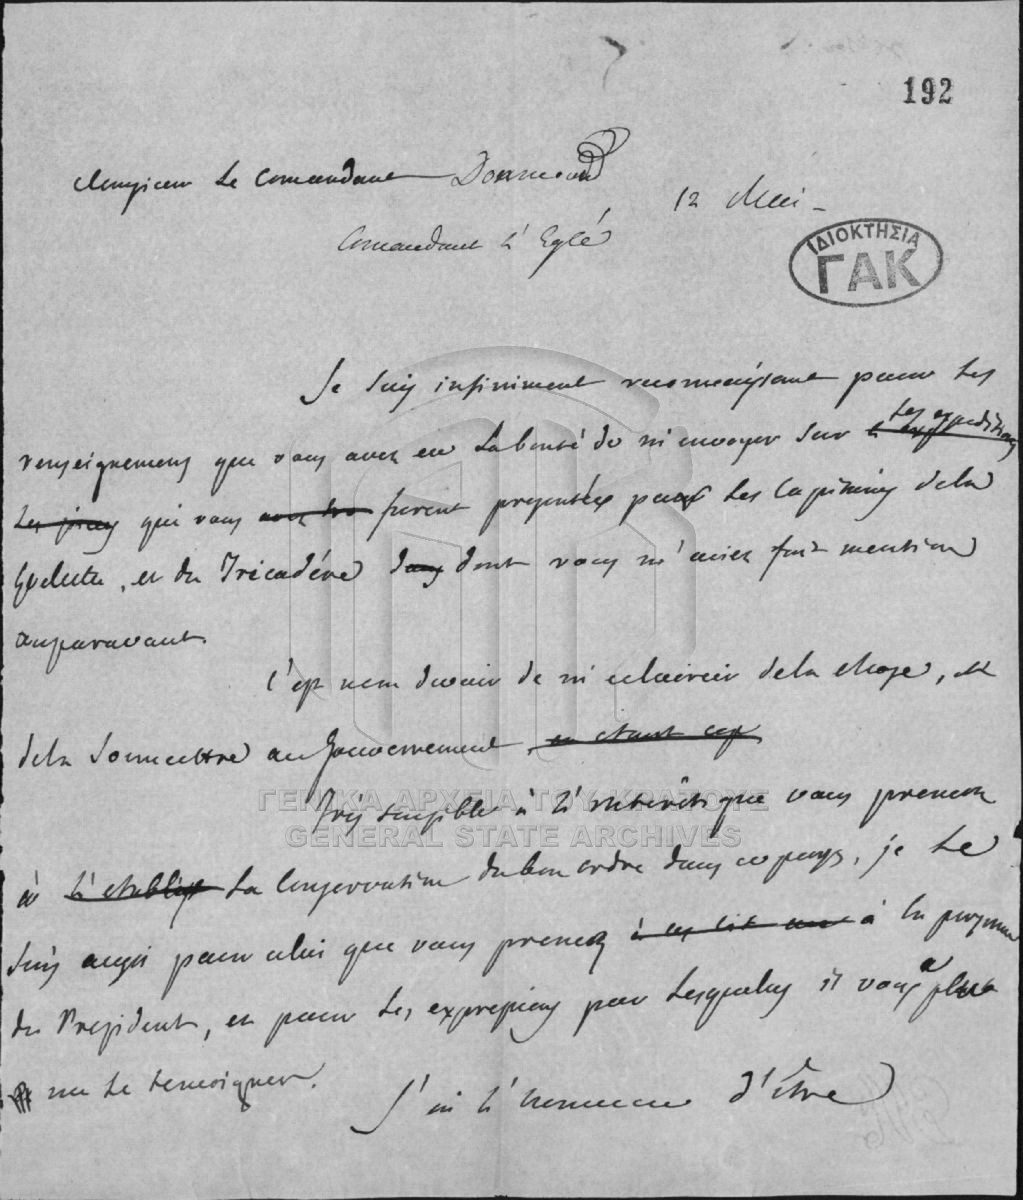 192
Monsieur Le Comandant
12 Mai -
Comandant L'Eglé
ΙΔΙΟΚΤΗΣΙΑ
ΓΑΚ
Je suis infiniment reconnaissant pour les
renseignemens que vous avez eu la bonté de m'envoyer sur les expeditions
qui vous furent presentées par les Capitaines de la
Goelette, et du Tricadére dont vous m'aviez fait mention
auparavant.
C'est mon devoir de m'eclaircir de la chose, et
de la soumettre au Gouvernement en etant
ΓΕΝΙΚΑ ΑΡΧΕΙΑ ΤΟΥ ΚΡΑΤΟΥΣ
GENERAL STATE ARCHIVES
Très sensible à l'interêt que vous prenez
à l'etabliss la Conservation du bon ordre dans ce pays, je le
suis aussi pour celui que vous prenez à la personne
du President, et pour les expressions par lesquelles il vous a plu
me le temoigner.
J'ai l'honneur d'être